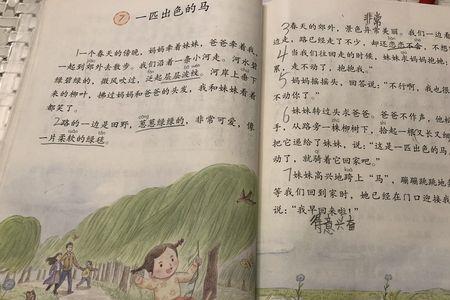 7 一匹出色的马
1一个春天的傍晚，妈妈牵着妹妹，爸爸牵着我，
一起到郊外去散步。我们沿着一条小河走。河水碧
绿碧绿的，微风吹过，泛起层层波纹。河岸上垂下
来的柳叶，拂过妈妈和爸爸的头发，我和妹妹看着
都笑了。
2路的一边是田野，葱葱绿绿的，非常可爱，像
一片柔软的绿毯。
非常
3春天的郊外，景色异常美丽。我们一边看
边走，路已经走了不少，却还恋恋不舍，不想
4当我们往回走的时候，妹妹求妈妈抱她
累，走不动了，抱抱我。”
5妈妈摇摇头，回答说：“不行啊，我也很
不动你了。”
6妹妹转过头求爸爸。爸爸不作声，他松
手，从路旁一株柳树下，拾起一根又长又细
把它递给了妹妹，说：“这是一匹出色的马
动了，就骑着它回家吧。”
7妹妹高兴地跨上“马”，蹦蹦跳跳地
等我们回到家时，她已经在门口迎接我
说：“我早回来啦！”
得意 兴奋